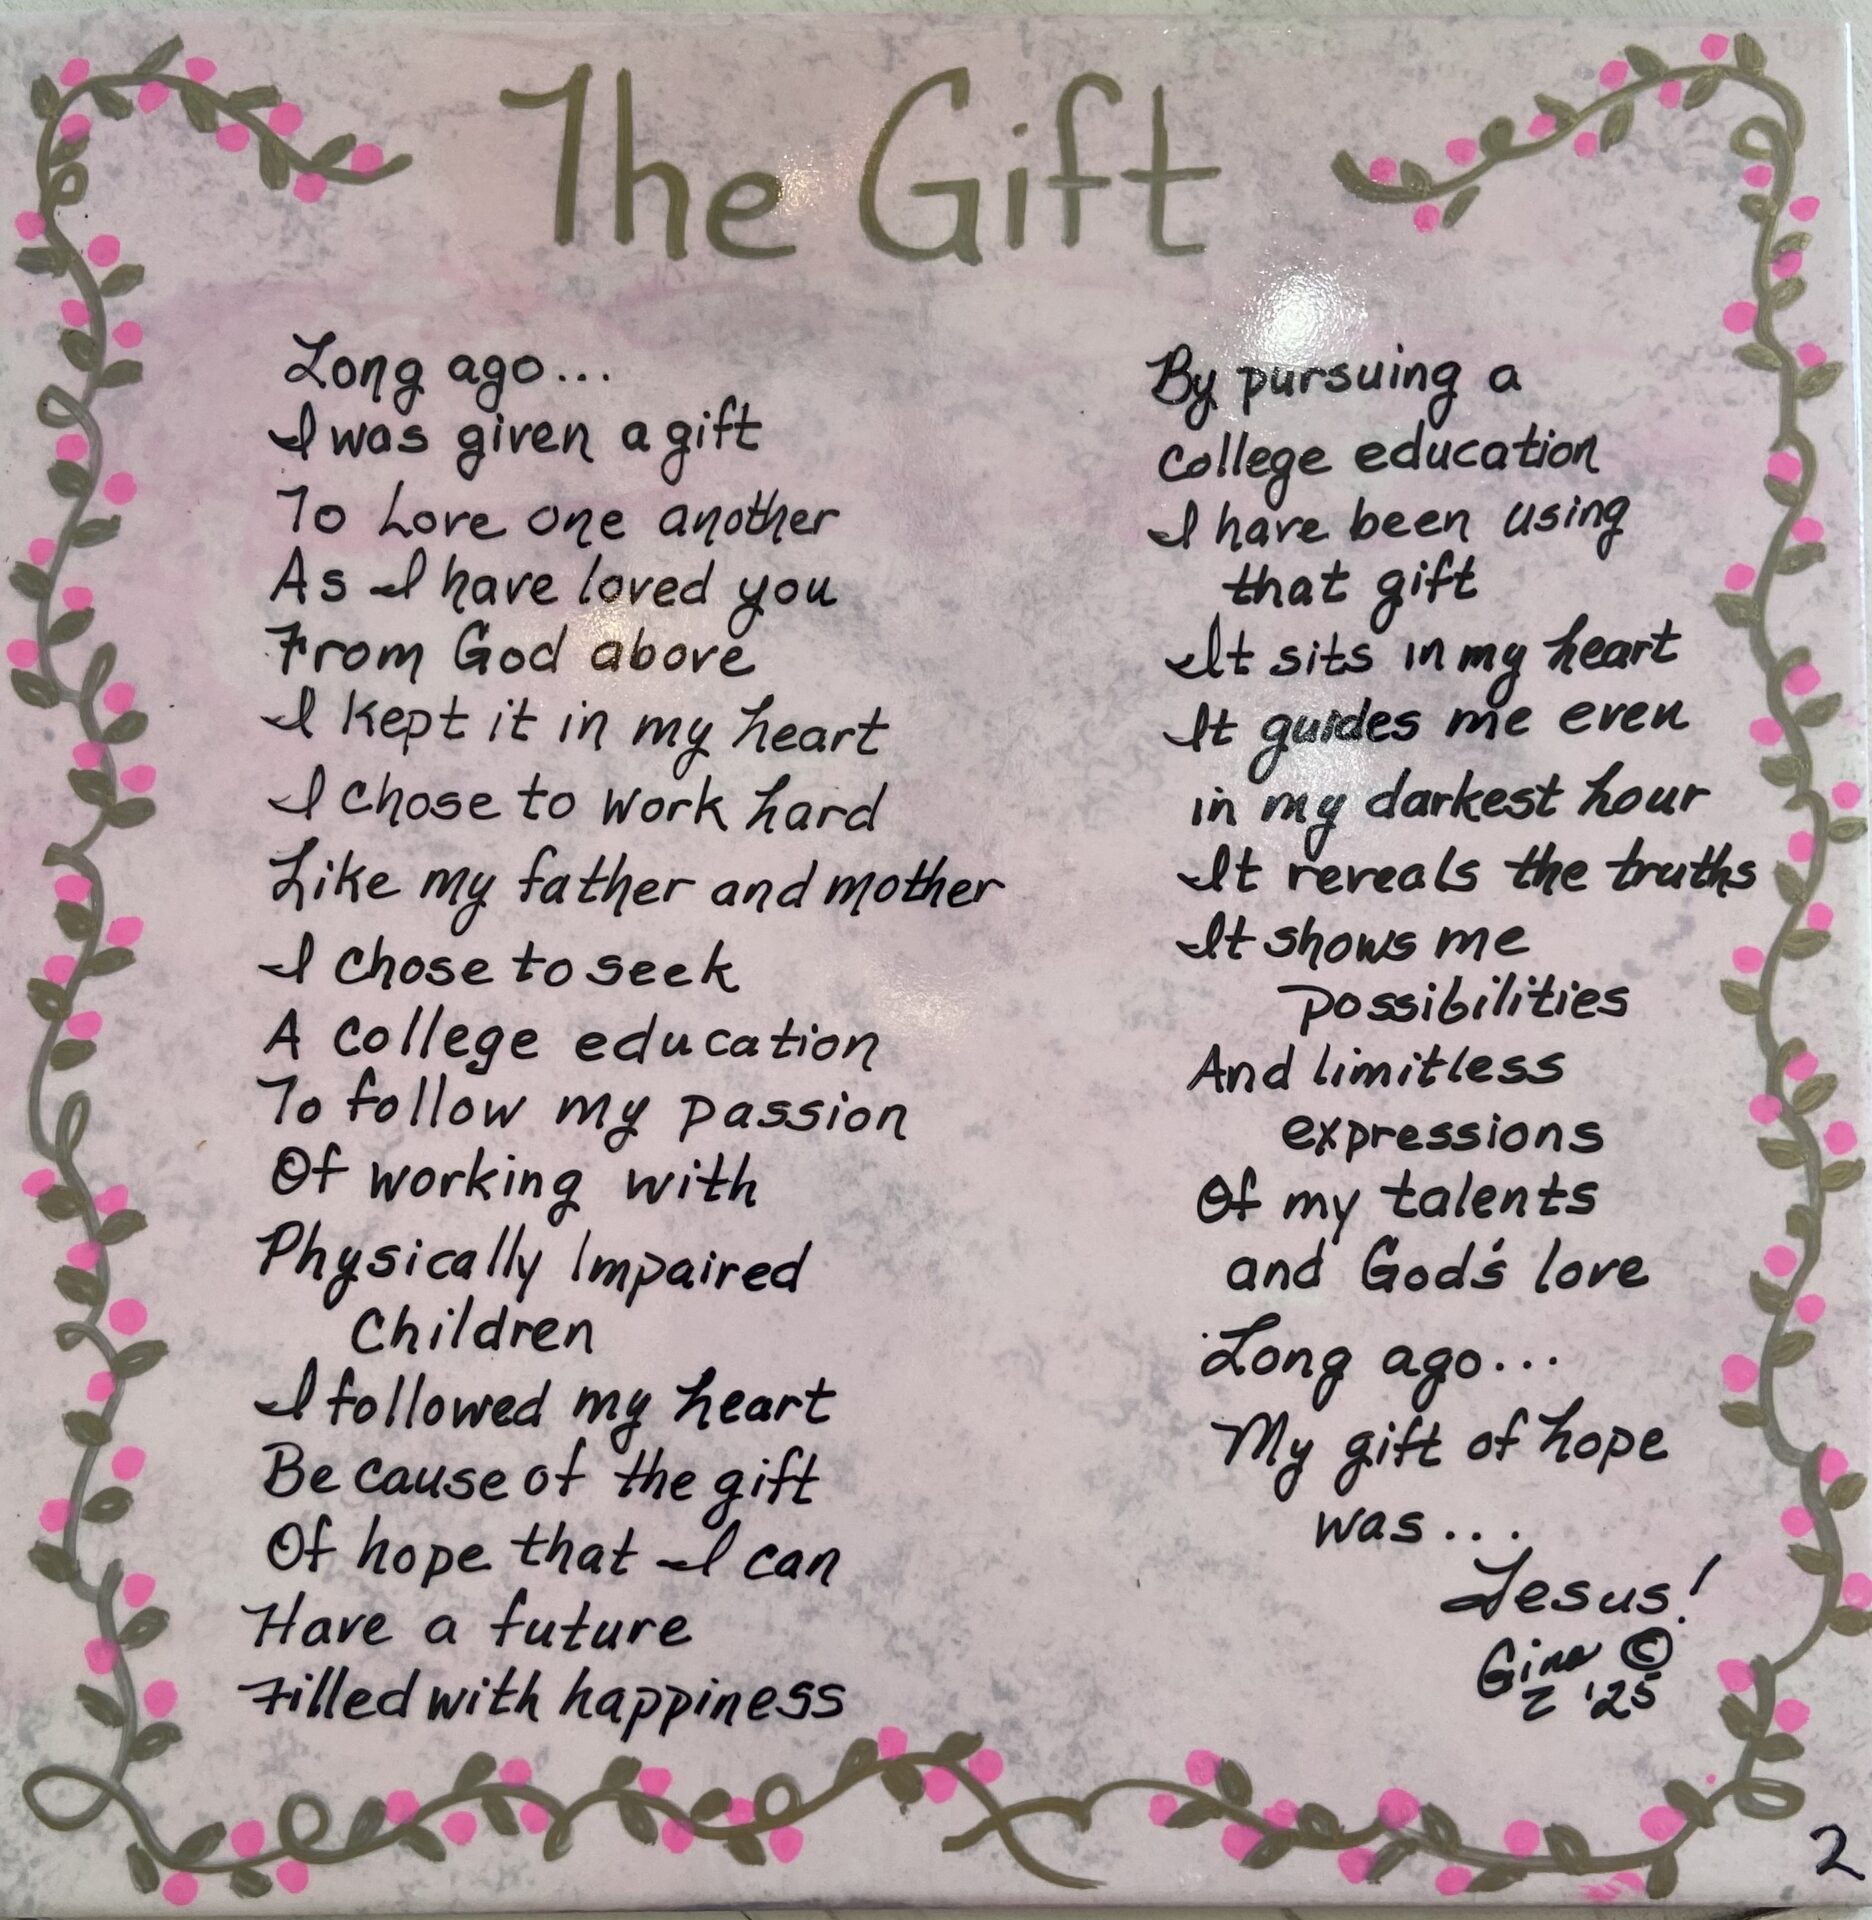 The Gift
Long ago...
I was given a gift
To Love one another
As I have loved you
From God above
I kept it in my heart
I chose to work hard
Like my father and mother
I chose to seek
A college education
To follow my passion
Of working with
Physically Impaired
Children
I followed my heart
Because of the gift
Of hope that I can
Have a future
Filled with happiness
By pursuing a
college education
I have been using
that gift
It sits in my heart
It guides me even
in my darkest hour
It reveals the truths
It shows me
possibilities
And limitless
expressions
Of my talents
and God's love
Long ago...
My gift of hope
was...
Jesus!
Gina ©
'25
2